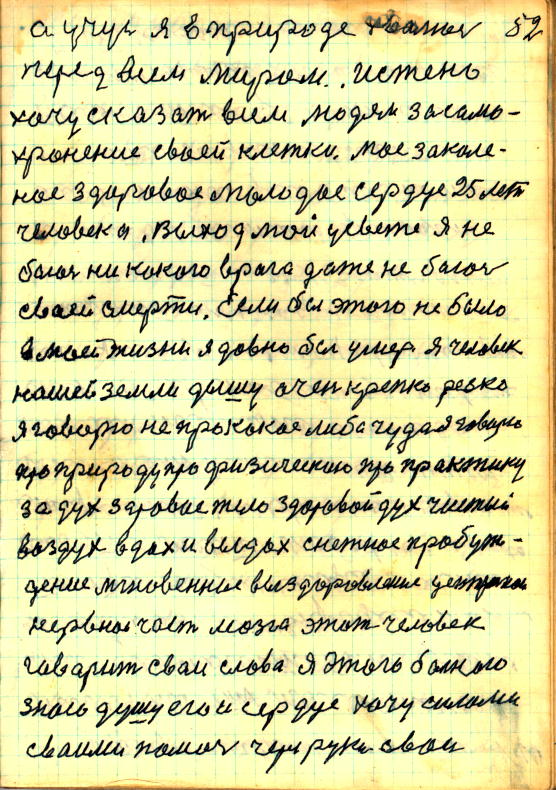 а учус я в природе хвалюс 52
перед всем миром. истень
хочу сказат всем людям за само-
хронение своей клетки. мое закале-
ное здоровое молодое сердце 25 лет
человека. Выход мой усвете я не
боюс ни какого врага даже не боюс
своей смерти. Если бы этого не было
в моей жизни я довно был умер я человек
нашей земли дышу очен крепко резко
я говорю не про какое либа чуда а я говорю
про природу про физическую про практику
за дух здоровое тело здоровой дух чистый
воздух вдох и выдох снежное пробуж-
дение мгновенное выздоровление централн
нервной част мозга этот человек
говарит сваи слова я этого болного
знаю душу его и сердце хочу силами
своими помоч через руки свои